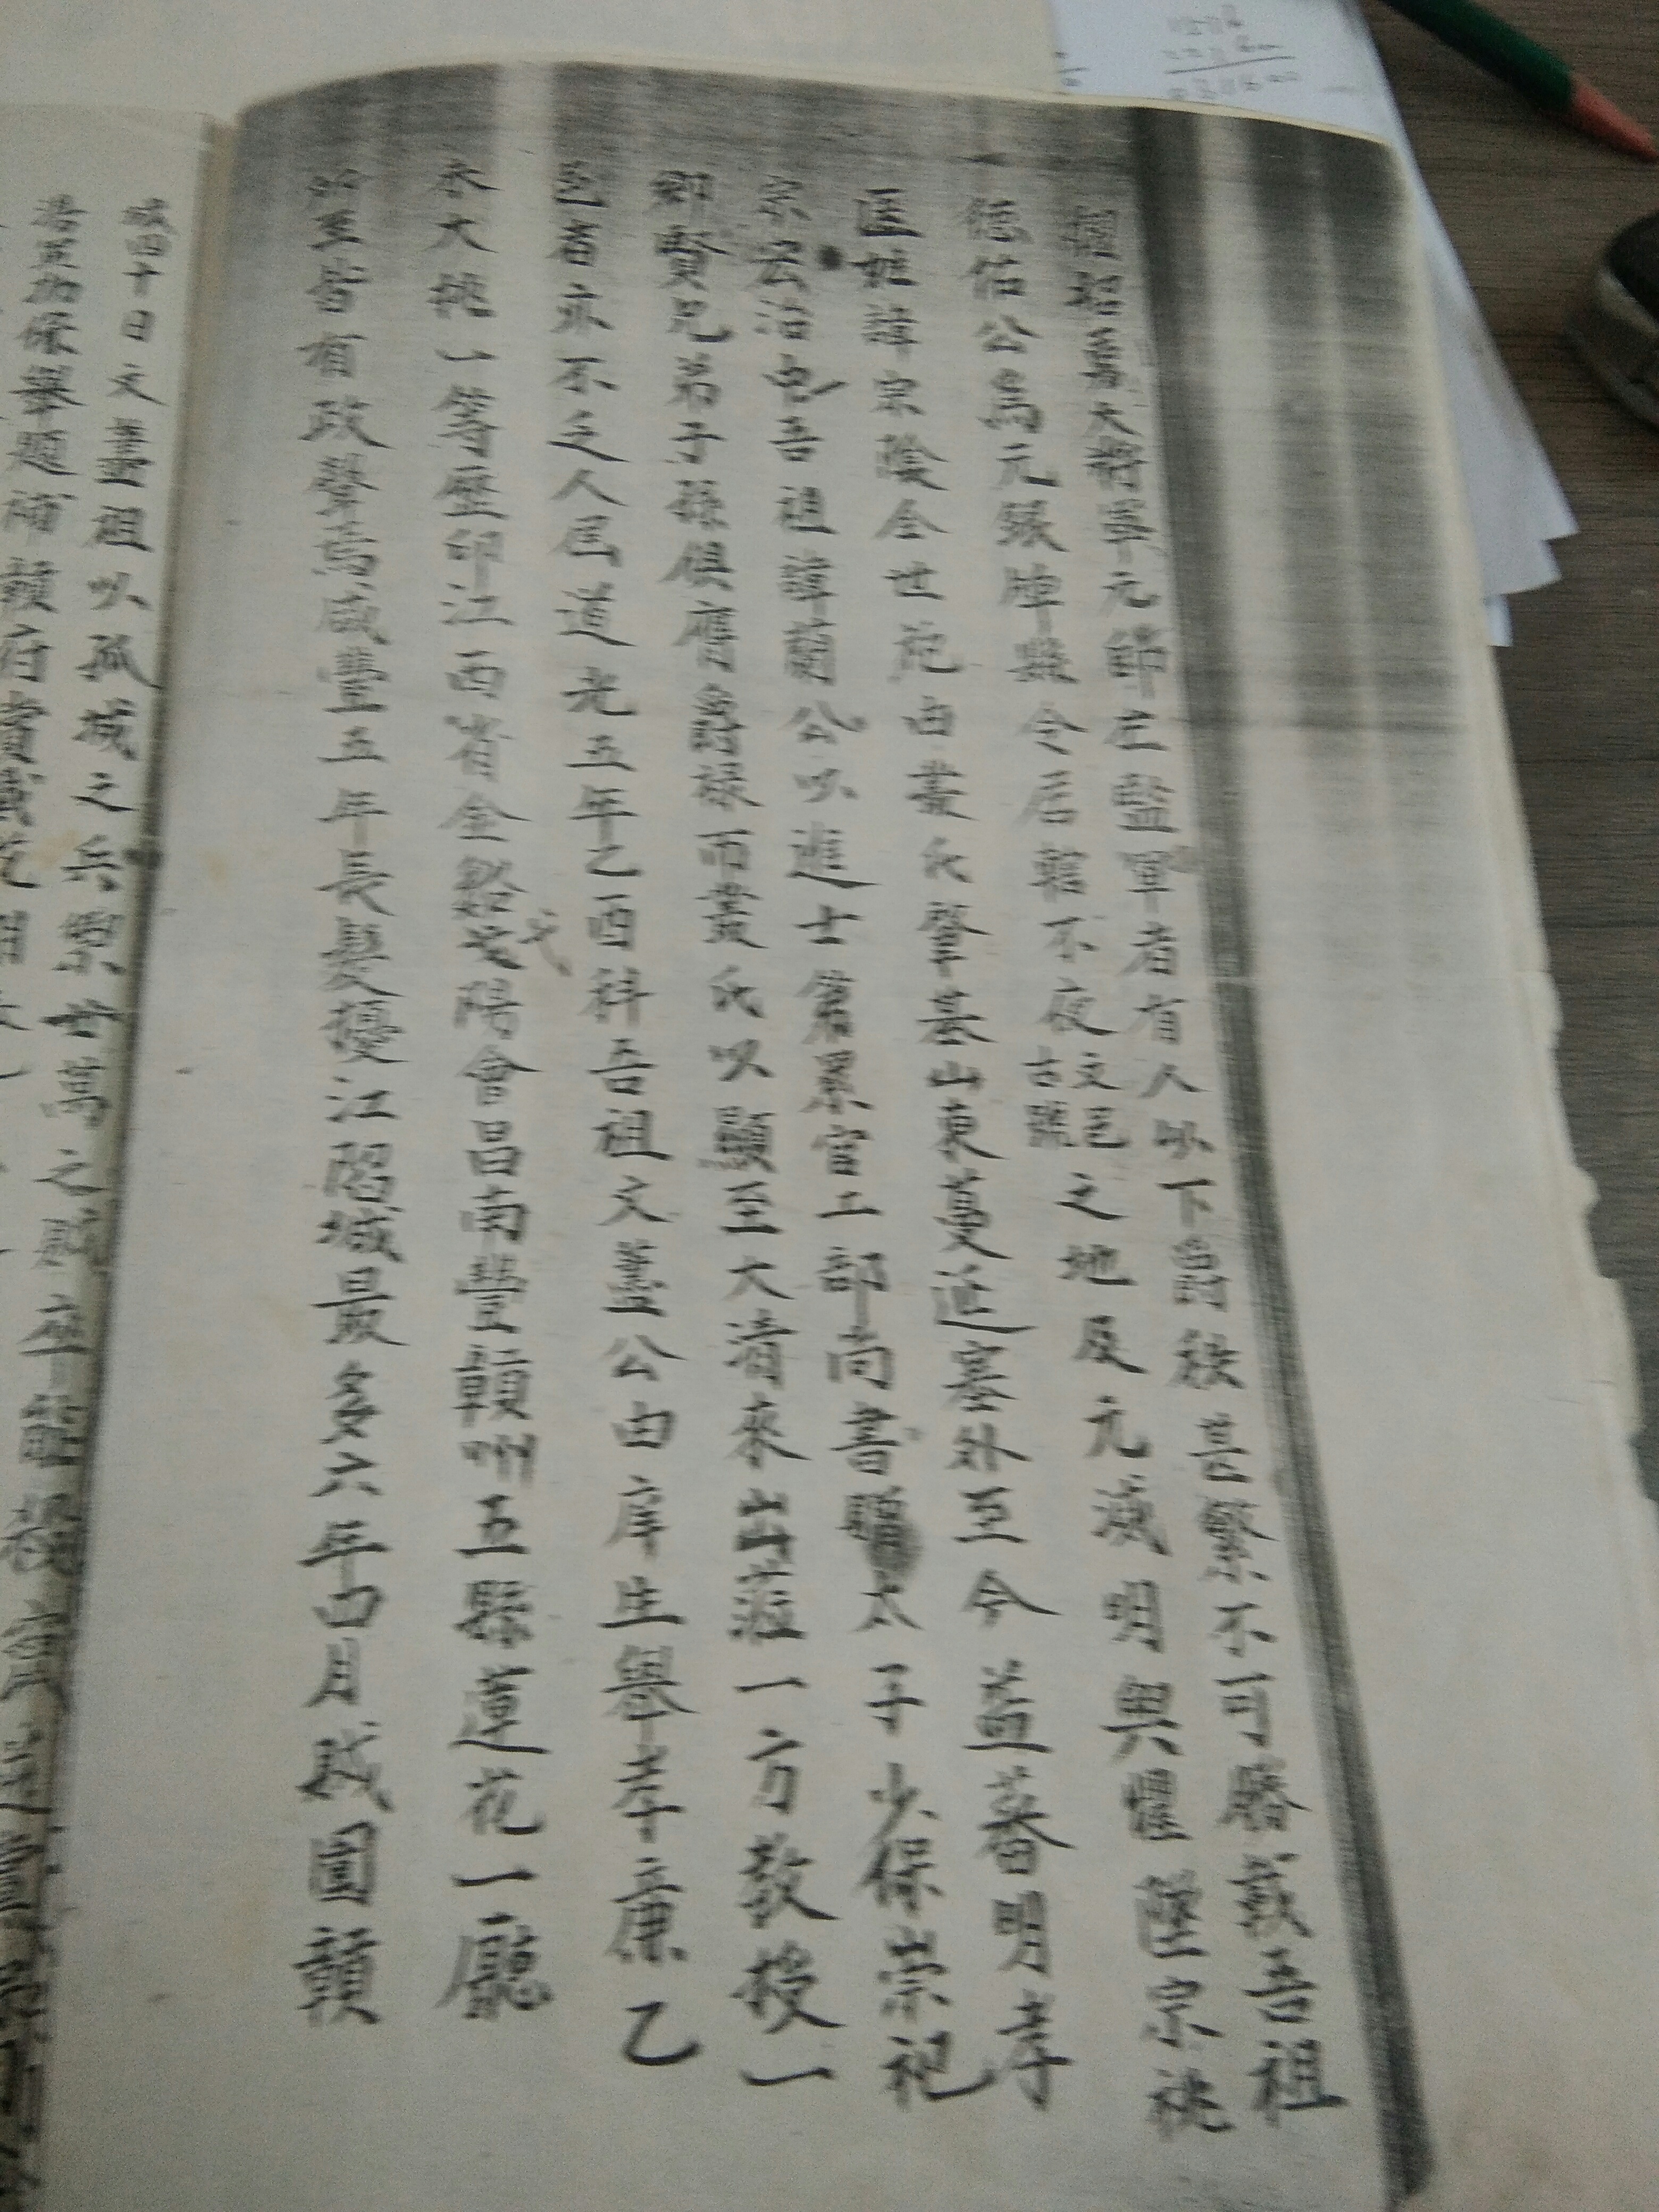 昭勇大將軍元師左監軍者有人以下爵秩甚繁不可勝載吾祖
德佑公爲元銀牌縣令居轄不夜文邑古號之地及元滅明興懼墜宗祧
匿姓諱宗陰令世范由叢氏肇基山東蔓延塞外至今益蕃明孝
宗宏治也吾祖諱蘭公以進士第累官工部尚書贈太子少保崇祀
鄉賢兄弟子孫俱膺爵祿而叢氏以顯至大清來出蒞一方教授一
邑者亦不乏人屆道光五年乙酉科吾祖文藎公由庠生舉孝廉乙
未大挑一等歷印江西省金谿弋陽會昌南豐贛州五縣蓮花一廳
所至皆有政聲焉咸豐五年長髮擾江陷城最多六年四月賊圍贛
城四十日文藎祖以孤城之兵禦廿萬之賊卒
保舉題補贛府